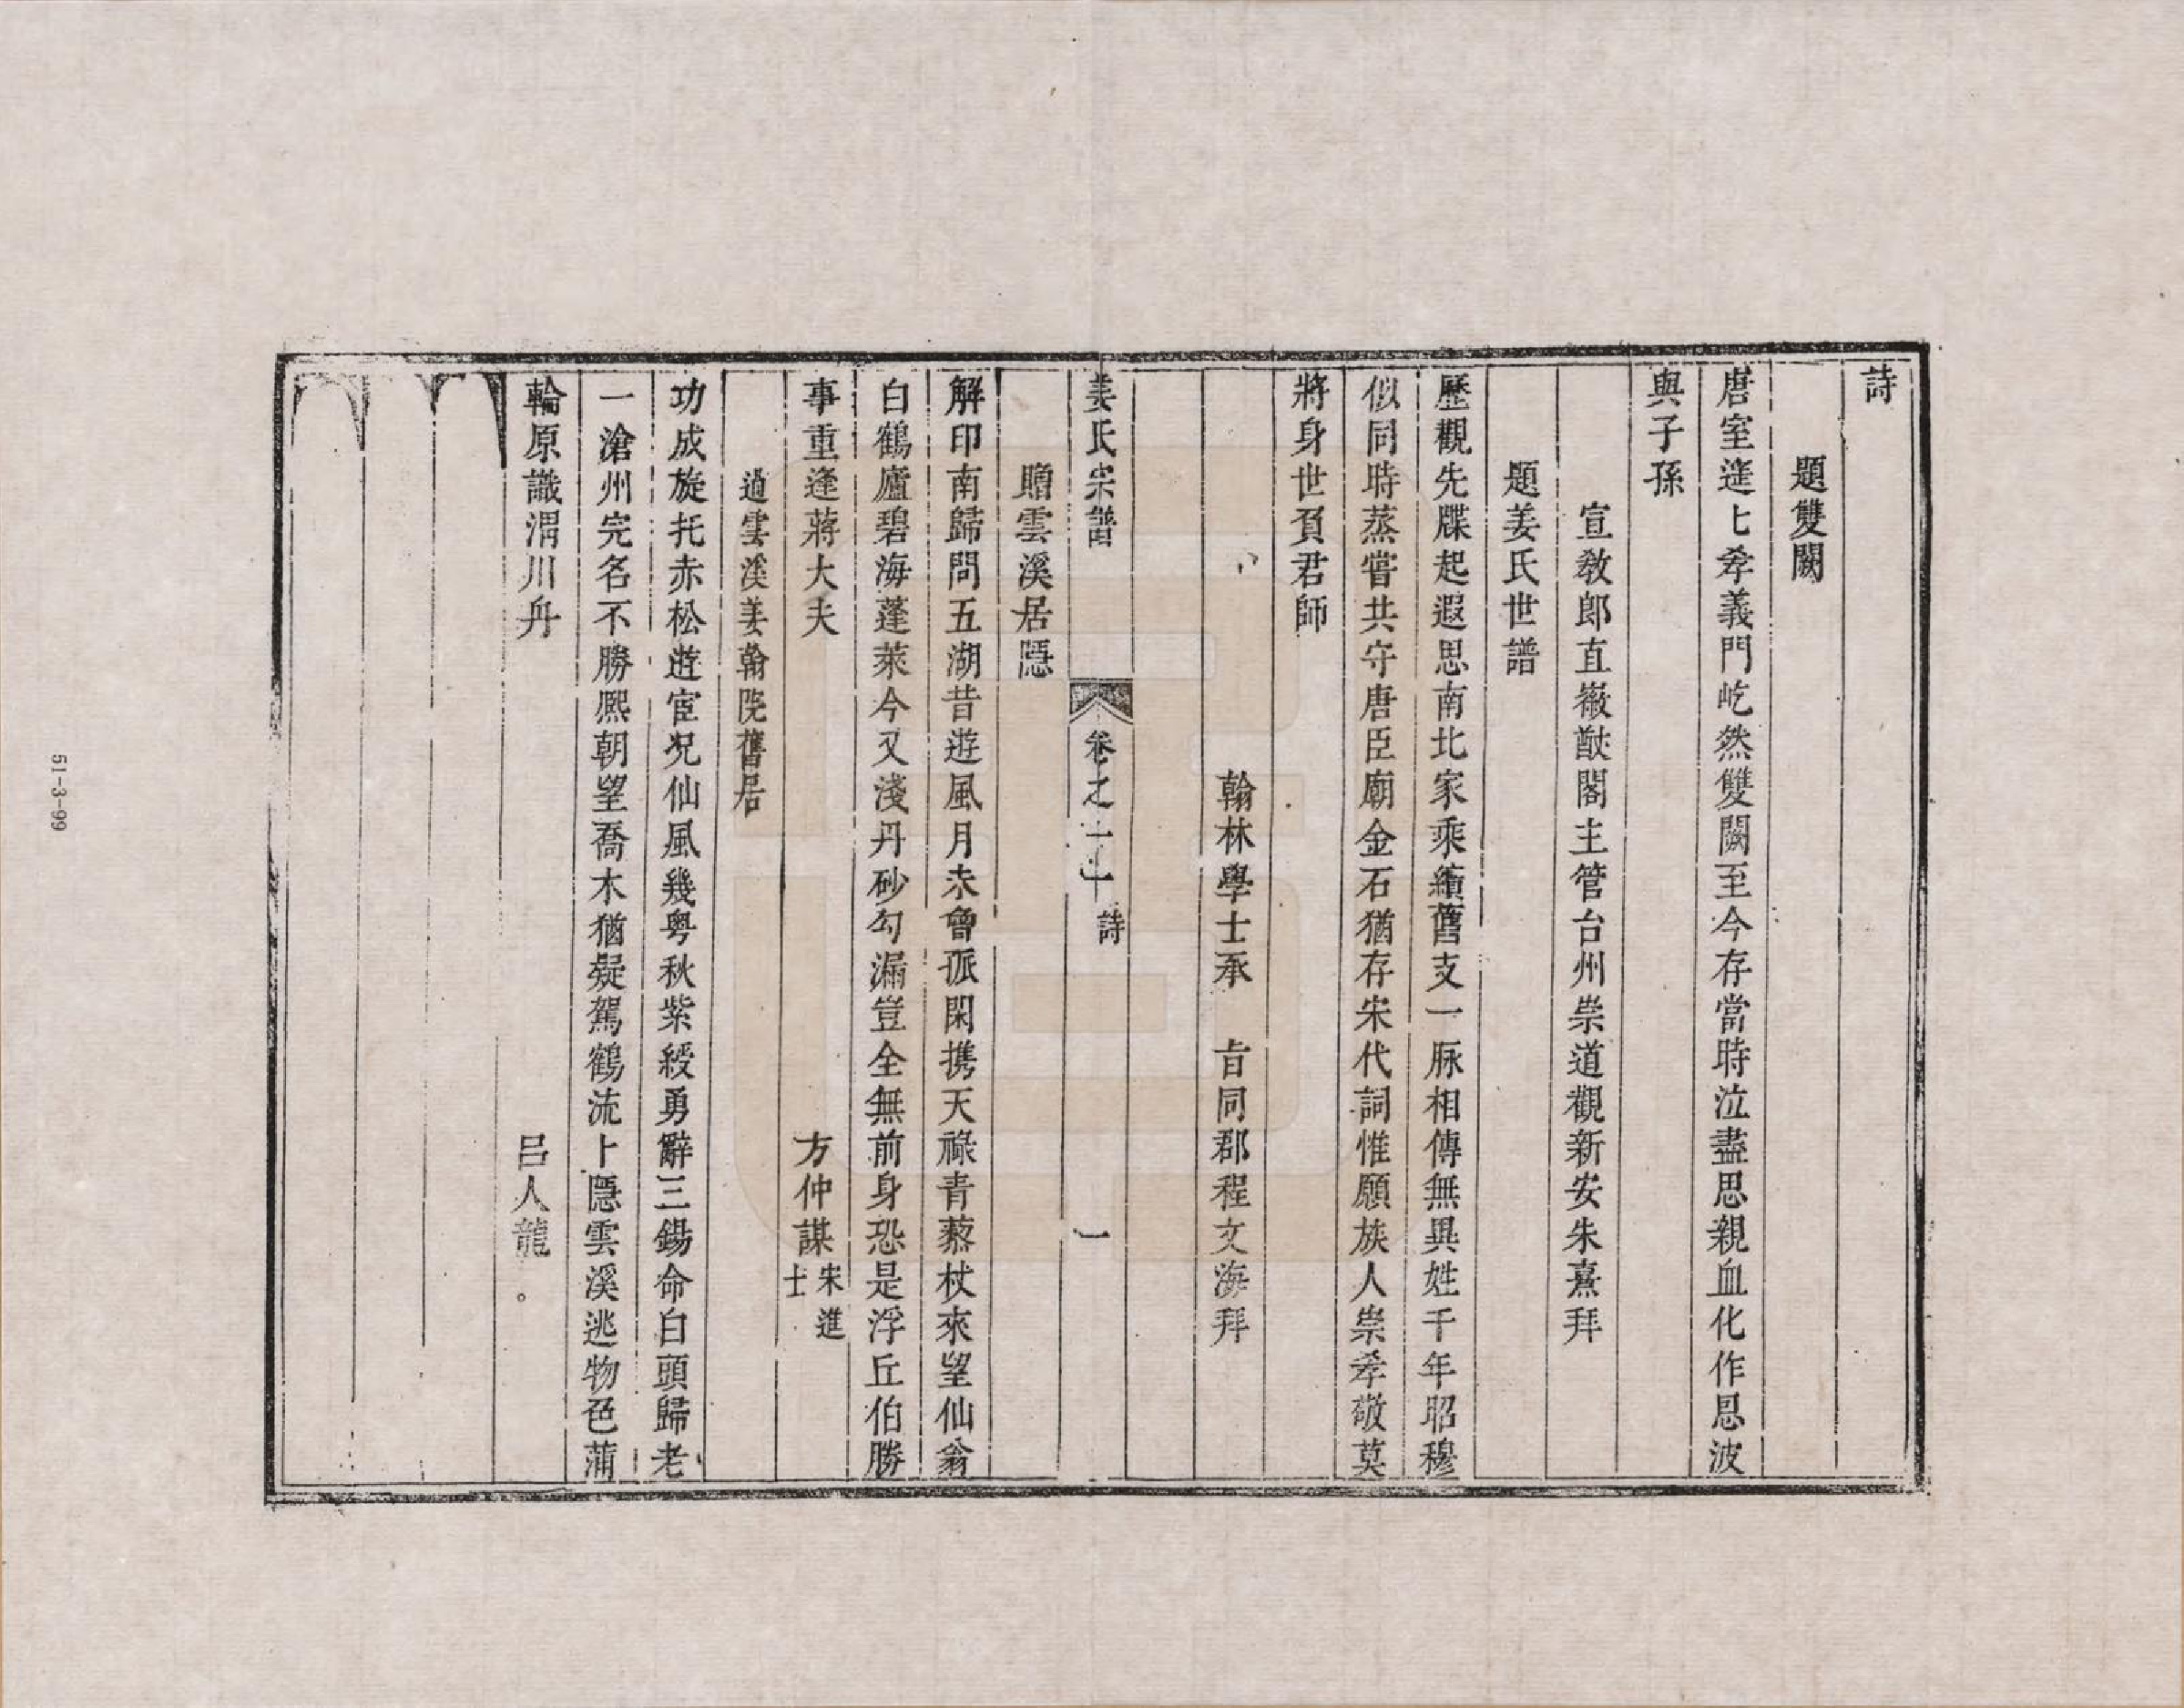 詩
題雙闕
唐室旌七孝義門屹然雙闕至今存當時泣盡思親血化作恩波
與子孫
宣教郎直徽猷閣主管台州崇道觀新安朱熹拜
題姜氏世譜
歷觀先牒起遐思南北家乘續舊支一脉相傳無異姓千年昭穆
似同時蒸嘗共守唐臣廟金石猶存宋代詞惟願族人崇孝敬莫
將身世負君師
翰林學士承　旨同郡程文海拜
姜氏宗譜　卷之　詩　一
贈雲溪居隱
解印南歸問五湖昔遊風月未曾孤閑携天祿青藜杖來望仙翁
白鶴廬碧海蓬萊今又淺丹砂勾漏豈全無前身恐是浮丘伯勝
事重逢蔣大夫
方仲謀宋進士
過雲溪姜翰院舊居
功成旋托赤松遊宦况仙風幾粤秋紫綬勇辭三錫命白頭歸老
一滄州完名不勝熈朝望喬木猶疑駕鶴流卜隱雲溪逃物色蒲
輪原識渭川舟
呂人龍
51-3-99